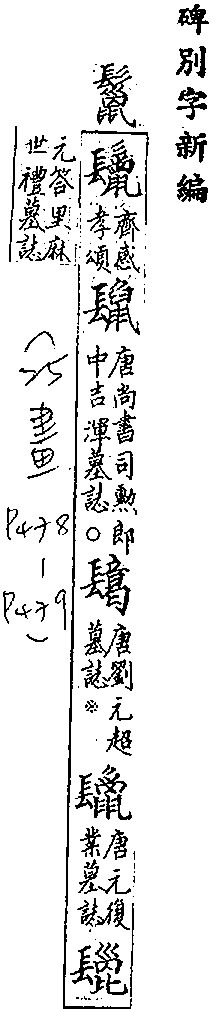 碑別字新編
鬣
齊感孝頌
唐尚書司勳郎中吉渾墓誌○
唐劉元超墓誌※
唐元復業墓誌
元答里麻世禮墓誌
(25畫
P478
—
P479)